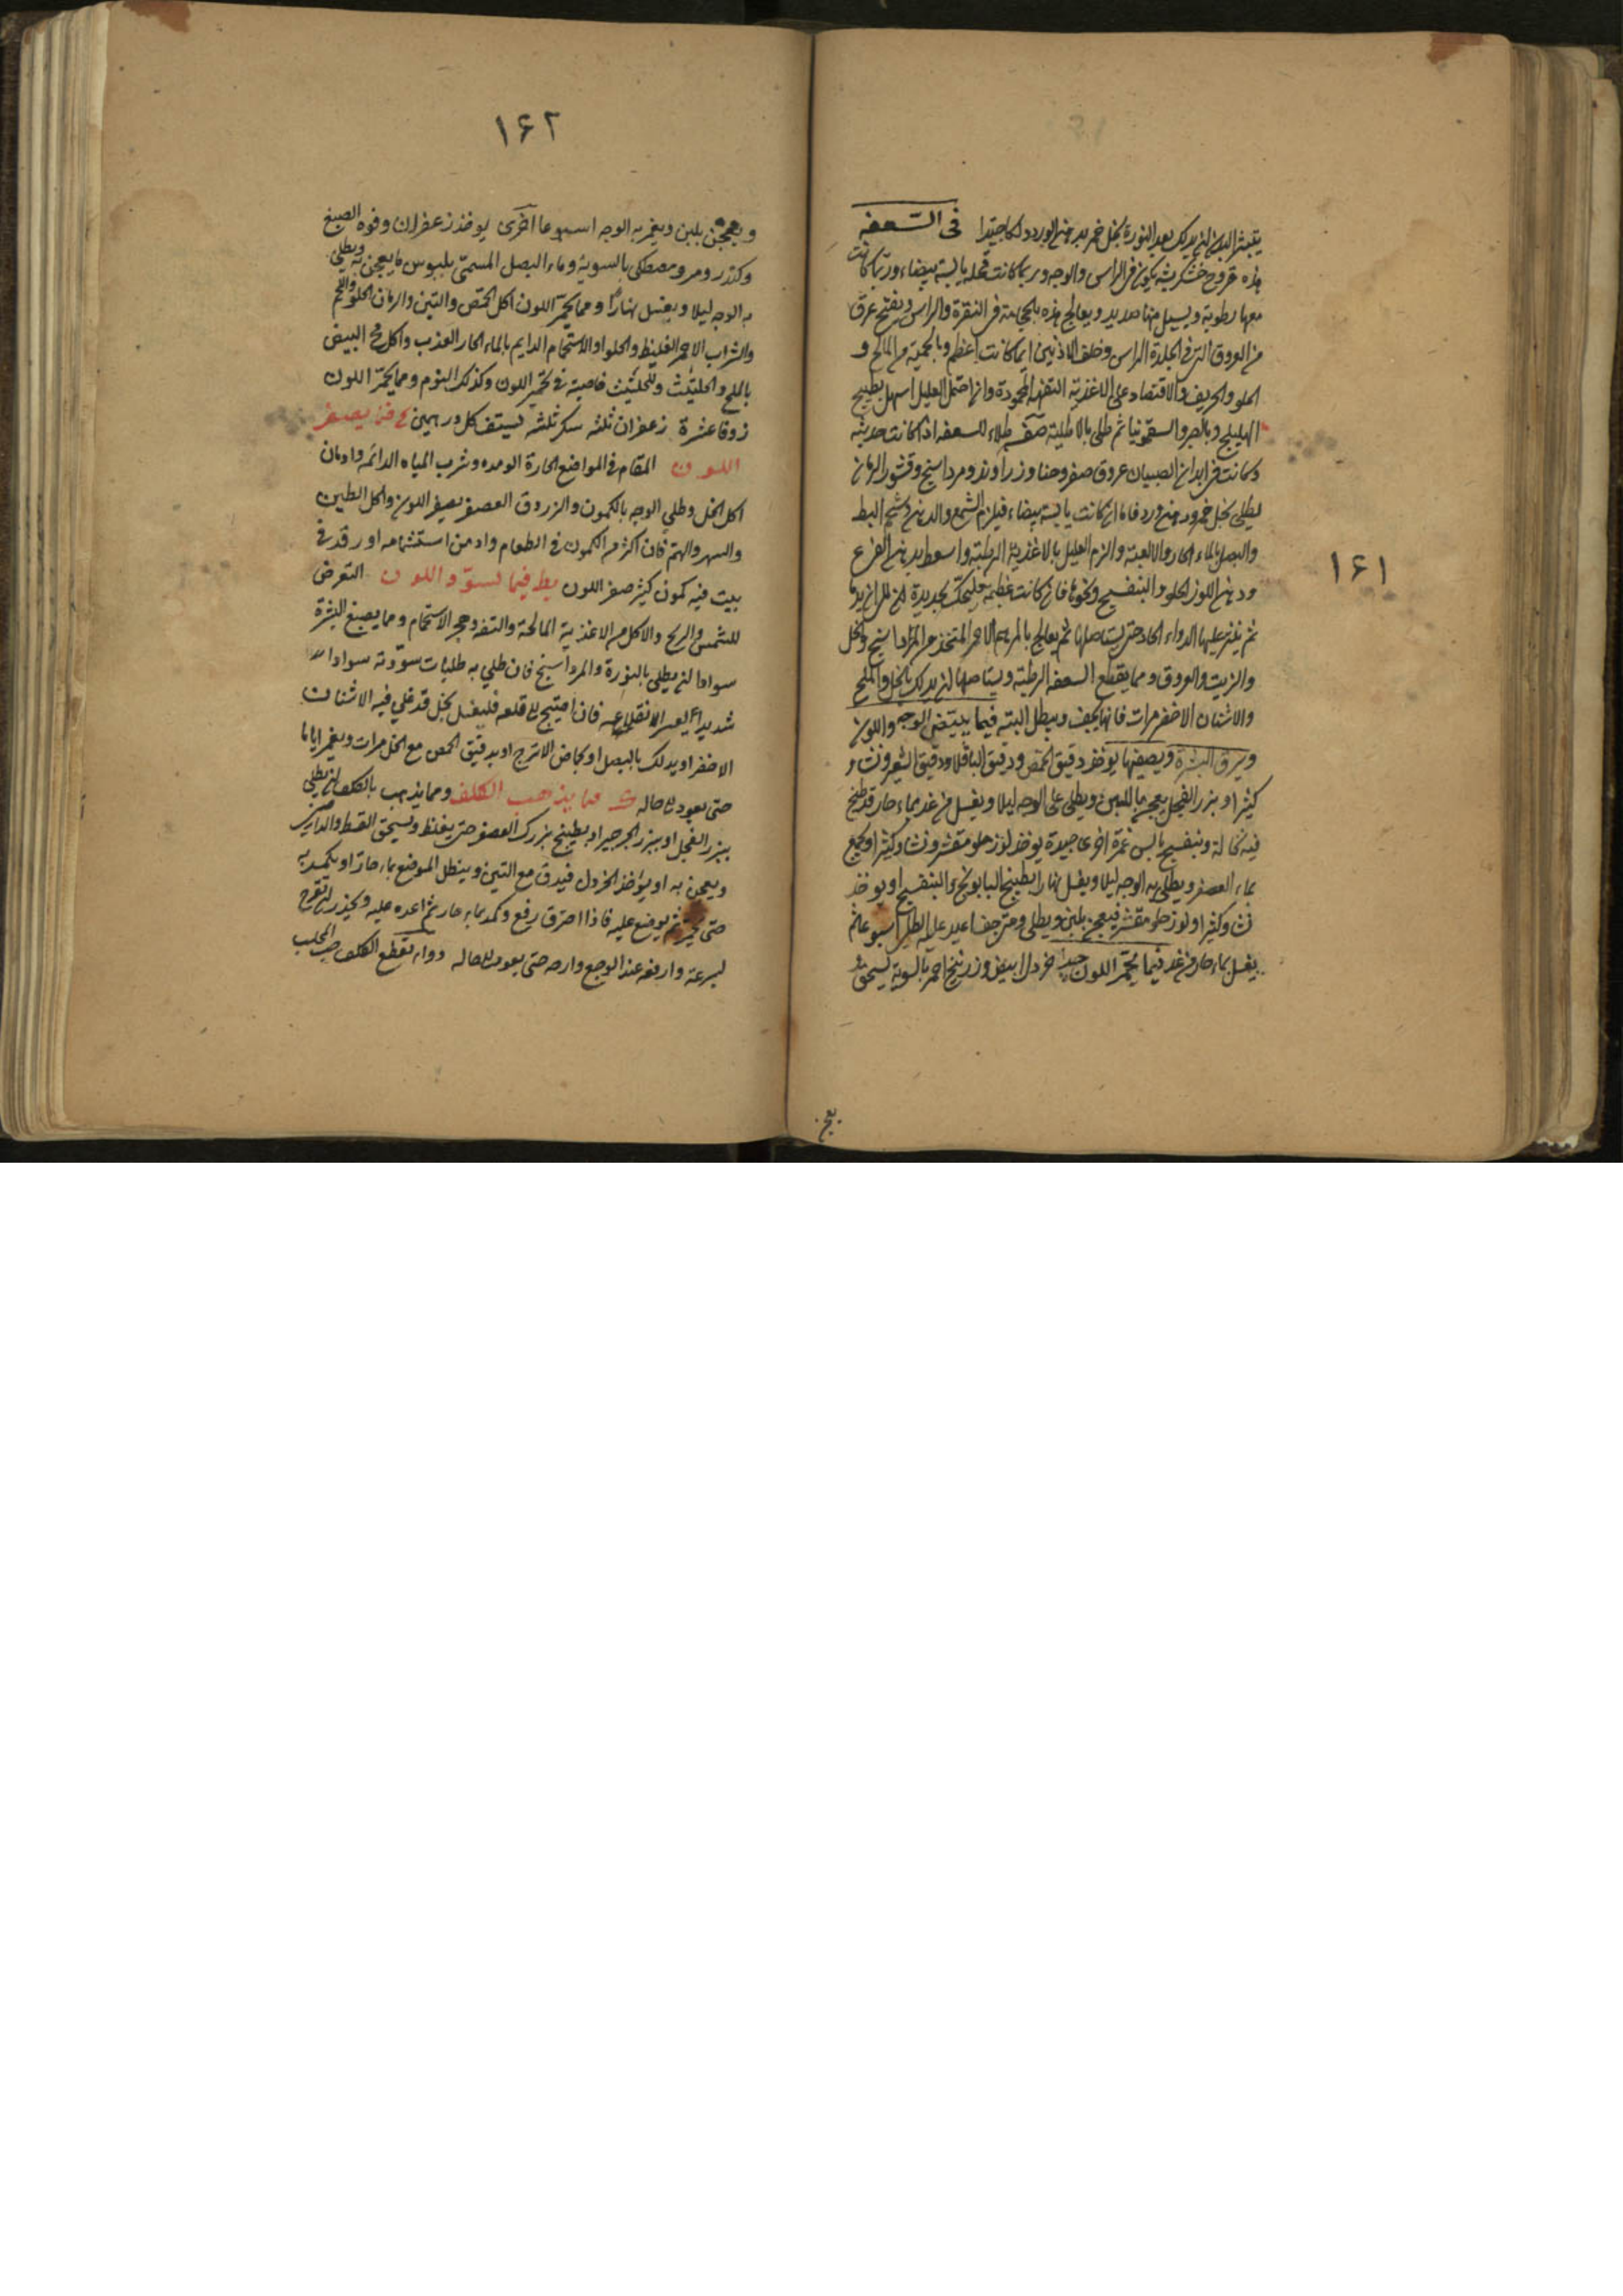 ۱۶۱
فى السعفه
هذه قروح خشكريشيه يكون فى الراس والوجه وربما كانت قحله يابسة بيضاء وربما كانت
معها رطوبة ويسيل منها صديد ويعالج هذه بالحجامة فى النقرة والراس وبفتح عرق
من العروق التى فى جلدة الراس وخلف الاذنين ايما كانت اعظم وبالحمية من المالح و
الحلو والحريف والاقتصار على الاغذية التفهه المحمودة وان احتمل العليل اسهل بطبيخ
الهليلج وبالصبر والسقمونيا ثم طلى بالاطلية صفة طلاء للسعفه اذا كانت حديثه
وكانت فى ابدان الصبيان عروق صفر وحنا وزراوند ومرداسنج وقشور الرمان
يطلى بخل خمر ودهن ورد فاما ان كانت يابسة بيضاء فيلزم الشمع والدهن وشحم البط
والبصل بالماء الحار والالعبة والزم العليل بالاغذية الرطبة واسعط بدهن القرع
ودهن اللوز الحلو والبنفسج ونحوها فان كانت عظيمة فليحك بحديدة الى ان يدما
ثم ينثر عليها الدواء الحاد حتى يستاصلها ثم يعالج بالمرهم الاحمر المتخذ من المرداسنج والخل
والزيت والعروق ومما يقطع السعفه الرطبة ويستاصلها ان يدلك بالخل والملح
والاشنان الاخضر مرات فانها يجف ويبطل البته فيما يبيض الوجه واللون
ويرق البشرة ويصفيها يوخذ دقيق الحمص ودقيق الباقلا ودقيق الشعير ونشا و
كثيرا وبزر الفجل يعجن باللبن ويطلى على الوجه ليلا ويغسل من غد بماء حار قد طبخ
فيه نخالة وبنفسج يابس غمرة اخرى جيدة يوخذ لوز حلو مقشر ونشا وكثيرا ويجمع
بماء العصفر ويطلى به الوجه ليلا ويغسل نهارا بطبيخ البابونج والبنفسج او يوخذ
نشا وكثيرا ولوز حلو مقشر فيعجن بلبن ويطلى ومتى جف اعيد عليه الطلى اسبوعا ثم
يغسل بماء حار من غد فيما يحمر اللون جيد خردل ابيض وزرنيخ احمر بالسوية يسحق و
۱۶۲
ويعجن بلبن ويغمر به الوجه اسبوعا اخرى يوخذ زعفران وفوه الصبغ
وكندر ومر ومصطكى بالسوية وماء البصل المسمى بلبوس ما يعجن به ويطلى
به الوجه ليلا ويغسل نهارا ومما يحمر اللون اكل الحمص والتين والرمان الحلو واللحم
والشراب الاحمر الغليظ والحلو والاستحمام الدايم بالماء الحار العذب واكل مح البيض
بالملح والحلتيث وللحلتيث خاصية فى تحمير اللون وكذلك الثوم ومما يحمر اللون
زوفا عشرة زعفران ثلثه سكر ثلثه يستف كل درهمين يح فى يصفر
اللون المقام فى المواضع الحارة الومده وشرب المياه الدائمه وادمان
اكل الخل وطلى الوجه بالكمون والزروق العصفر يصفر اللون واكل الطين
والسهر والهم فان اكثر من الكمون فى الطعام وادمن استشمامه او رقد فى
بيت فيه كمون كثير صفر اللون يط فيما يسود اللون التعرض
للشمس والريح والاكل من الاغذية المالحة والتفه وهجر الاستحمام ومما يصبغ البشرة
سوادا ان يطلى بالنورة والمرداسنج فان طلى به طليات سودته سوادا
شديدا يعسر الانقلاع فان احتيج الى قلعه فليغسل بخل قد غلى فيه الاشنان
الاخضر او يدلك بالبصل او بحماض الاترج او بدقيق الحمص مع الخل مرات ويغمر اياما
حتى يعود الى حاله ك مما يذهب الكلف ومما يذهب بالكلف ان يطلى
ببزر الفجل او ببزر الجرجير او يطبخ بزرك العصفر حتى يغلظ ويسحق القسط والدارصينى
ويعجن به او يؤخذ الخردل فيدق مع التين وينطل الموضع بماء حار او يكمد به
حتى يحمر ثم يوضع عليه فاذا احترق رفع وكمد بماء حار ثم اعده عليه ويحذر ان يتقرح
لسرعة وارفعه عند الوجع وارحه حتى يعود الى حاله دواء يقطع الكلف حب المحلب